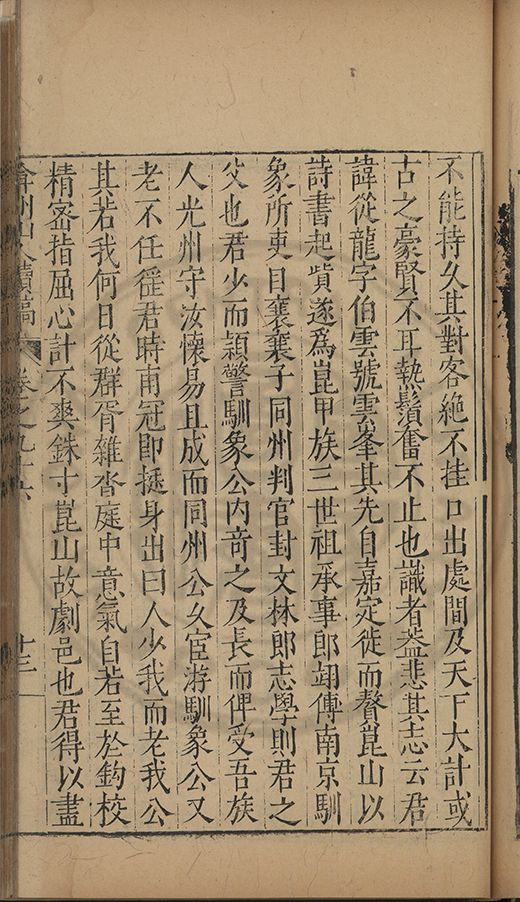 不能持久其對客絶不挂口出處間及天下大計或
古之豪賢不耳熱鬚奮不止也識者葢悲其志云君
諱從龍字伯雲號雲峯其先自嘉定徙而贅崑山以
詩書起貲遂爲崑甲族三世祖承事郎翊傳南京馴
象所吏目襄襄子同州判官封文林郎志學則君之
父也君少而穎警馴象公内竒之及長而俾受吾族
人光州守汝懷易且成而同州公久宦游馴象公又
老不任徭君時甫冠即挺身出曰人少我而老我公
其若我何日從群胥雜沓庭中意氣自若至於鈎校
精宻指屈心計不爽銖寸崑山故劇邑也君得以盡
弇州山人續稿 卷之九十六 十三